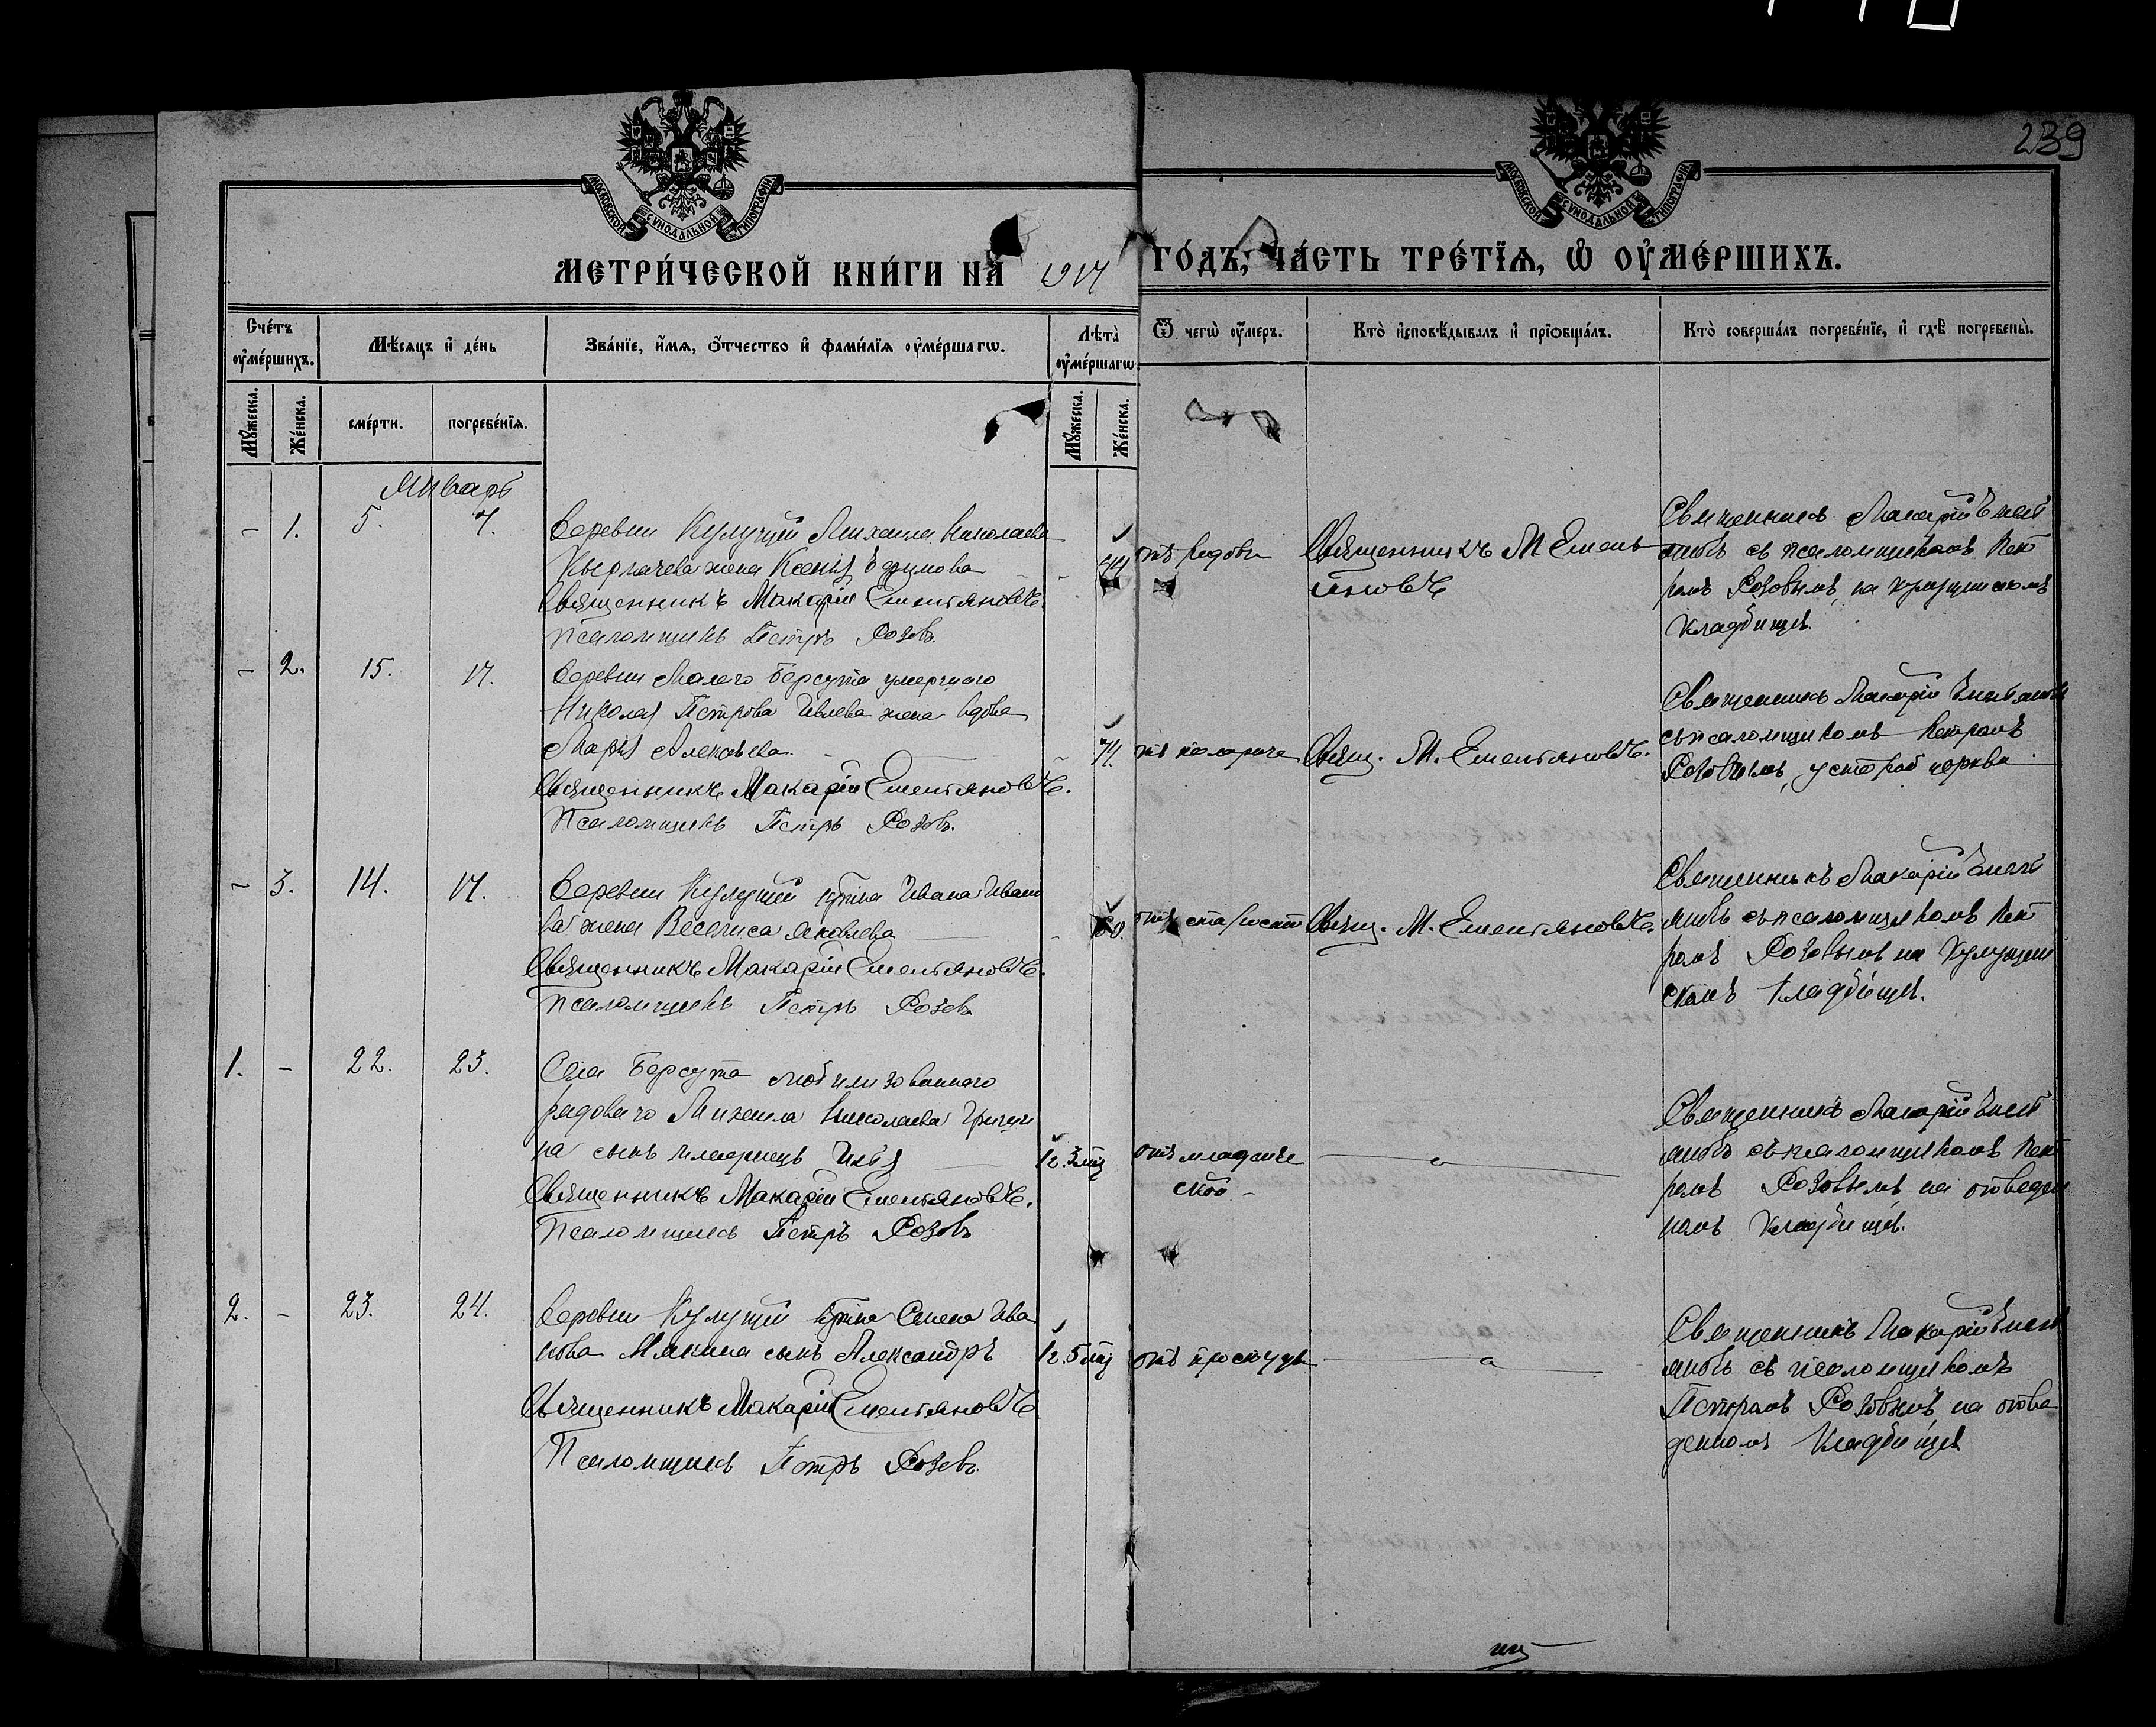 239
МОСКОВСКОЙ СУНОДАЛЬНОЙ ТИПОГРАФІИ
МОСКОВСКОЙ СУНОДАЛЬНОЙ ТИПОГРАФІИ
МЕТРИ́ЧЕСКОЙ КНИ́ГИ НА 1917 ГО́ДЪ, ЧА́СТЬ ТРЕ́ТЇѦ, Ѡ ОУМЕ́РШИХЪ.
Сче́тъ оуме́ршихъ.
Мѣ́сяцъ и де́нь
Зва́нїе, и́мѧ, о́тчество и фами́лїѧ оуме́ршагѡ.
Лѣта̀ оуме́ршагѡ
Ѿ чегѡ̀ оу́меръ.
Кто̀ исповѣ́дывалъ и прїобща́лъ.
Кто̀ соверша́лъ погребе́нїе, и гдѣ̀ погребены̀.
Мꙋ́жеска.
Же́нска.
сме́рти.
погребе́нїѧ.
Мꙋ́жеска.
Же́нска.
Январь
- 1. 5. 7.
Деревни Кулущи Михаила Николаева
жена Ксенія
Священникъ Макарій Емельяновъ.
Псаломщикъ Петръ Розовъ.
44
отъ родовъ
Священникъ М Емель
яновъ
Священникъ Макарій Емель
яновъ съ псаломщикомъ Пет
ромъ Розовымъ, на Кулущинскомъ
кладбищѣ.
- 2. 15. 17.
Деревни Малаго Берсута умершаго
Николая Петрова Ивлева жена вдова
Марія Алексѣева.
Священникъ Макарій Емельяновъ.
Псаломщикъ Петръ Розовъ.
74.
Свящ. М. Емельяновъ.
Священникъ Макарій Емельяновъ
съ псаломщикомъ Петромъ
Розовымъ, у старой церкви
- 3. 14. 17.
Деревни Кулущи Ивана Ивано
ва жена Васса Яковлева
Священникъ Макарій Емельяновъ.
Псаломщикъ Петръ Розовъ
60.
отъ старости
Свящ. М. Емельяновъ.
Священникъ Макарій Емель
яновъ съ псаломщикомъ Пет
ромъ Розовымъ на Кулущин
скомъ кладбищѣ.
1. - 22. 23.
Села Берсута мобилизованнаго
рядового Михаила Николаева
на сынъ младенецъ Илья
Священникъ Макарій Емельяновъ.
Псаломщикъ Петръ Розовъ
1 г. 3 мѣс
отъ младенче
ской -
Священникъ Макарій Емель
яновъ съ псаломщикомъ Пет
ромъ Розовымъ на отведен
номъ кладбищѣ.
2. - 23. 24.
Деревни Кулущи Семена Ива
нова Мякина сынъ Александръ
Священникъ Макарій Емельяновъ
Псаломщикъ Петръ Розовъ.
1 г. 5 мѣс
отъ простуды
Священникъ Макарій Емель
яновъ съ псаломщикомъ
Петромъ Розовымъ на отве
денномъ кладбищѣ